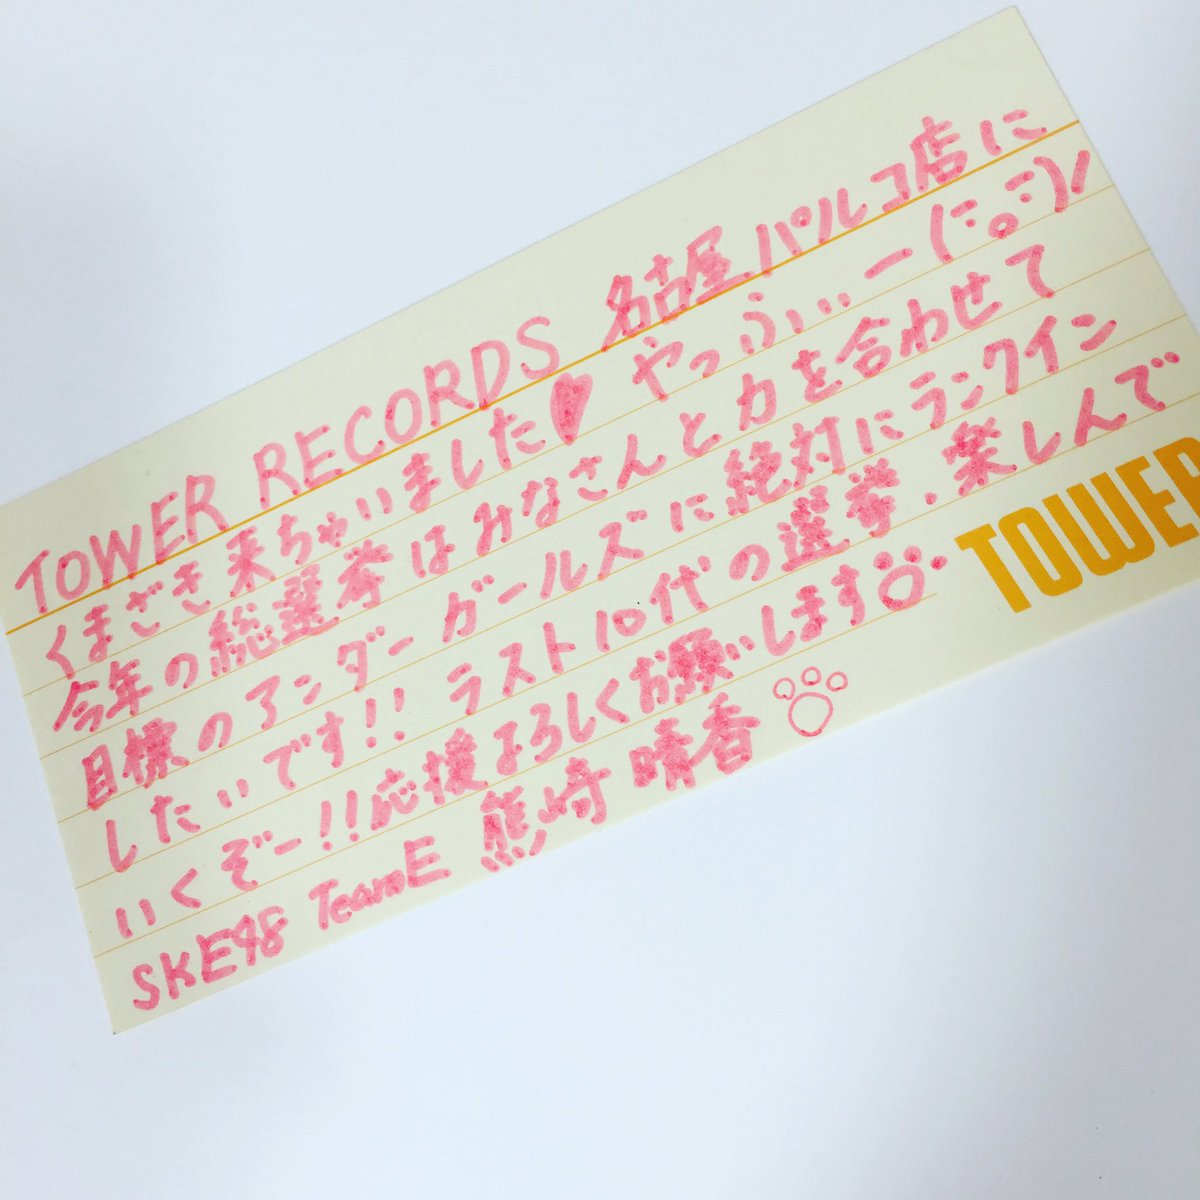 TOWER RECORDS 名古屋パルコ店に
くまざき来ちゃいました♥ やっふぃぃー(ﾆ。ﾆ)ﾉ
今年の総選挙はみなさんと力を合わせて
目標のアンダーガールズに絶対にランクイン
したいです!! ラスト10代の選挙、楽しんで
いくぞー!!応援よろしくお願いします
SKE48 TeamE 熊崎 晴香
TOWER